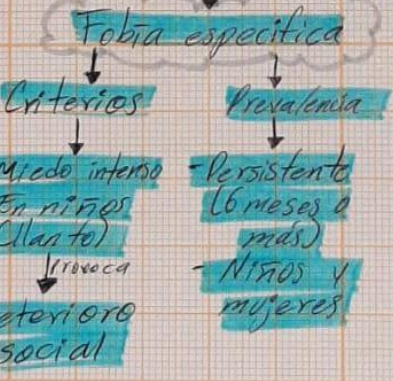 Fobia especifica
Criterios
Prevalencia
Miedo intenso
En niños
(llanto)
Provoca
eterioro
social
-Persistente
(6 meses o
más)
- Niños y
mujeres